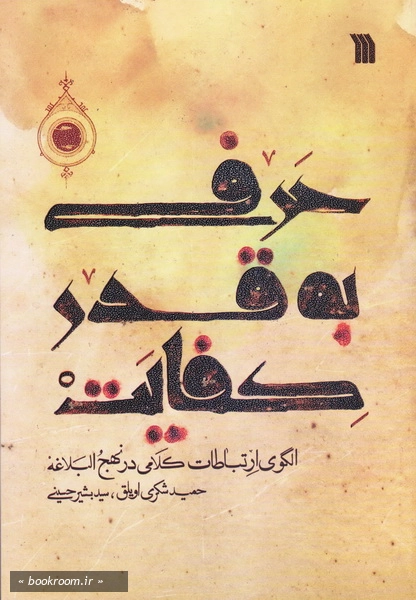 حرفی
به قدر
کفایت
الگوی ارتباطات کلامی در نهج البلاغه
حمید شکری اویلق، سید بشیر حسینی
« bookroom.ir »